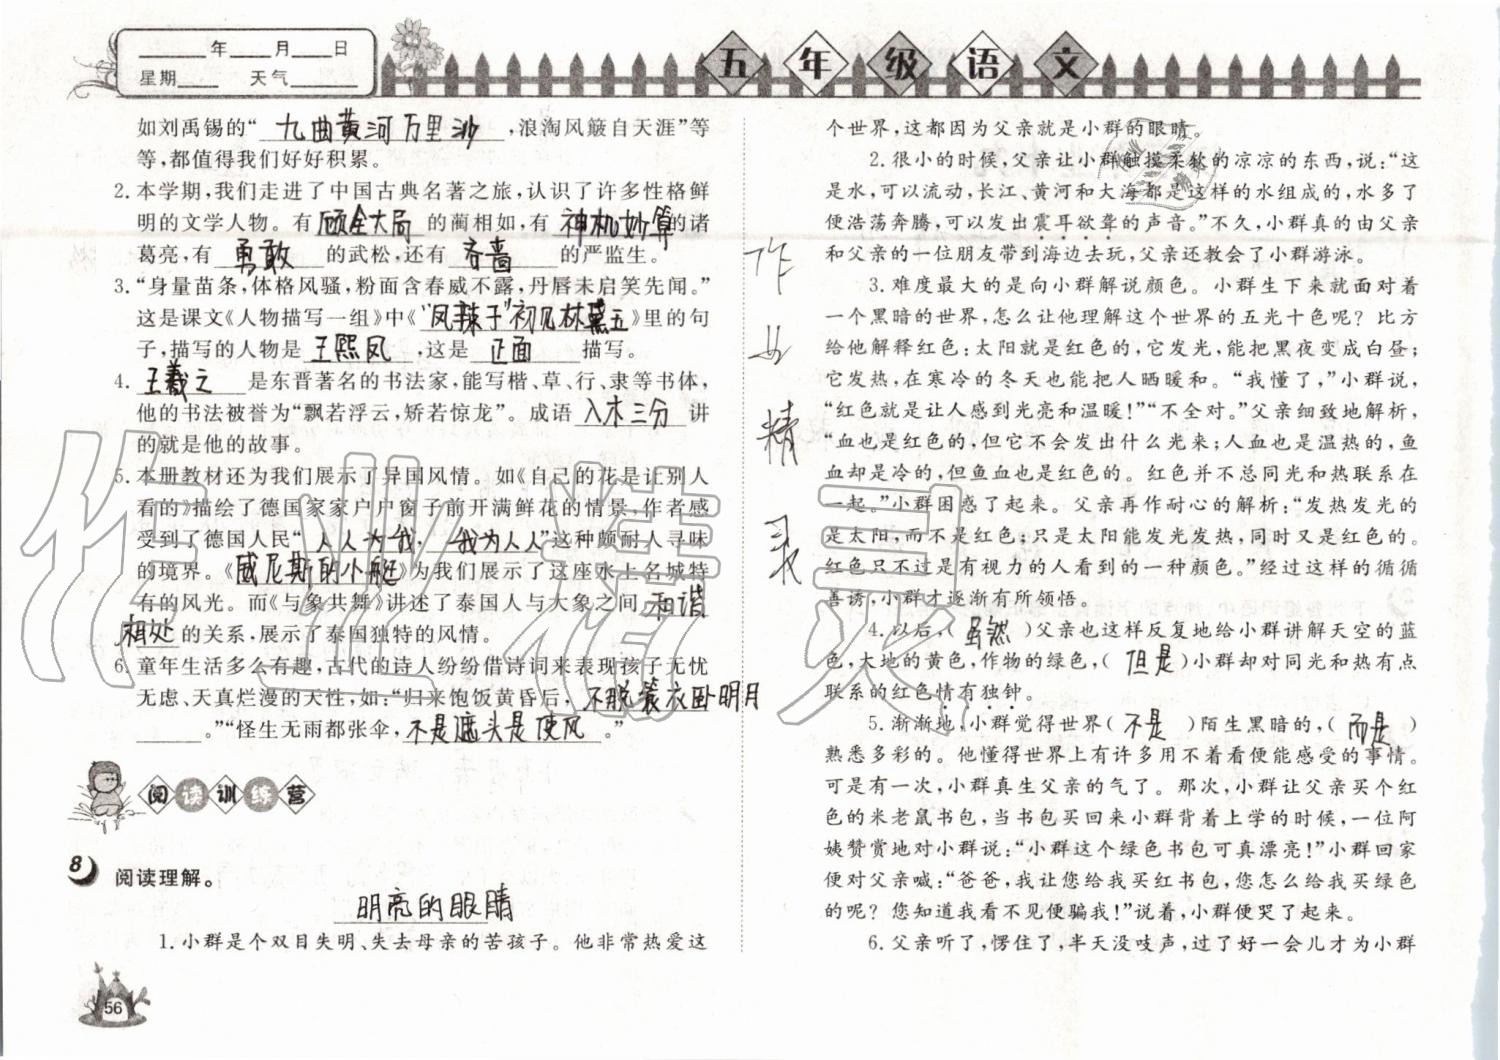 ______年____月____日
星期____ 天气______
五年级语文
如刘禹锡的“九曲黄河万里沙,浪淘风簸自天涯”等
等,都值得我们好好积累。
2. 本学期,我们走进了中国古典名著之旅,认识了许多性格鲜
明的文学人物。有 顾全大局 的蔺相如,有 神机妙算 的诸
葛亮,有 勇敢 的武松,还有 吝啬 的严监生。
3. “身量苗条,体格风骚,粉面含春威不露,丹唇未启笑先闻。”
这是课文《人物描写一组》中《“凤辣子”初见林黛玉》里的句
子,描写的人物是 王熙凤 ,这是 正面 描写。
4. 王羲之 是东晋著名的书法家,能写楷、草、行、隶等书体,
他的书法被誉为“飘若浮云,矫若惊龙”。成语 入木三分 讲
的就是他的故事。
5. 本册教材还为我们展示了异国风情。如《自己的花是让别人
看的》描绘了德国家家户户窗子前开满鲜花的情景,作者感
受到了德国人民“人人为我,我为人人”这种颇耐人寻味
的境界。《威尼斯的小艇》为我们展示了这座水上名城特
有的风光。而《与象共舞》讲述了泰国人与大象之间 和谐
相处 的关系,展示了泰国独特的风情。
6. 童年生活多么有趣,古代的诗人纷纷借诗词来表现孩子无忧
无虑、天真烂漫的天性,如:“归来饱饭黄昏后,不脱蓑衣卧明月
______。”“怪生无雨都张伞,不是遮头是使风。”
阅读训练营
8 阅读理解。
明亮的眼睛
1. 小群是个双目失明、失去母亲的苦孩子。他非常热爱这
56
作业精灵
作业精灵
个世界,这都因为父亲就是小群的眼睛。
2. 很小的时候,父亲让小群触摸柔软的凉凉的东西,说:“这
是水,可以流动,长江、黄河和大海都是这样的水组成的,水多了
便浩荡奔腾,可以发出震耳欲聋的声音。”不久,小群真的由父亲
和父亲的一位朋友带到海边去玩,父亲还教会了小群游泳。
3. 难度最大的是向小群解说颜色。小群生下来就面对着
一个黑暗的世界,怎么让他理解这个世界的五光十色呢?比方
给他解释红色:太阳就是红色的,它发光,能把黑夜变成白昼;
它发热,在寒冷的冬天也能把人晒暖和。“我懂了,”小群说,
“红色就是让人感到光亮和温暖!”“不全对。”父亲细致地解析,
“血也是红色的,但它不会发出什么光来;人血也是温热的,鱼
血却是冷的,但鱼血也是红色的。红色并不总同光和热联系在
一起。”小群困惑了起来。父亲再作耐心的解析:“发热发光的
是太阳,而不是红色;只是太阳能发光发热,同时又是红色的。
红色只不过是有视力的人看到的一种颜色。”经过这样的循循
善诱,小群才逐渐有所领悟。
4. 以后,( 虽然 )父亲也这样反复地给小群讲解天空的蓝
色,大地的黄色,作物的绿色,( 但是 )小群却对同光和热有点
联系的红色情有独钟。
5. 渐渐地,小群觉得世界( 不是 )陌生黑暗的,( 而是 )
熟悉多彩的。他懂得世界上有许多用不着看便能感受的事情。
可是有一次,小群真生父亲的气了。那次,小群让父亲买个红
色的米老鼠书包,当书包买回来小群背着上学的时候,一位阿
姨赞赏地对小群说:“小群这个绿色书包可真漂亮!”小群回家
便对父亲喊:“爸爸,我让您给我买红书包,您怎么给我买绿色
的呢?您知道我看不见便骗我!”说着,小群便哭了起来。
6. 父亲听了,愣住了,半天没吱声,过了好一会儿才为小群